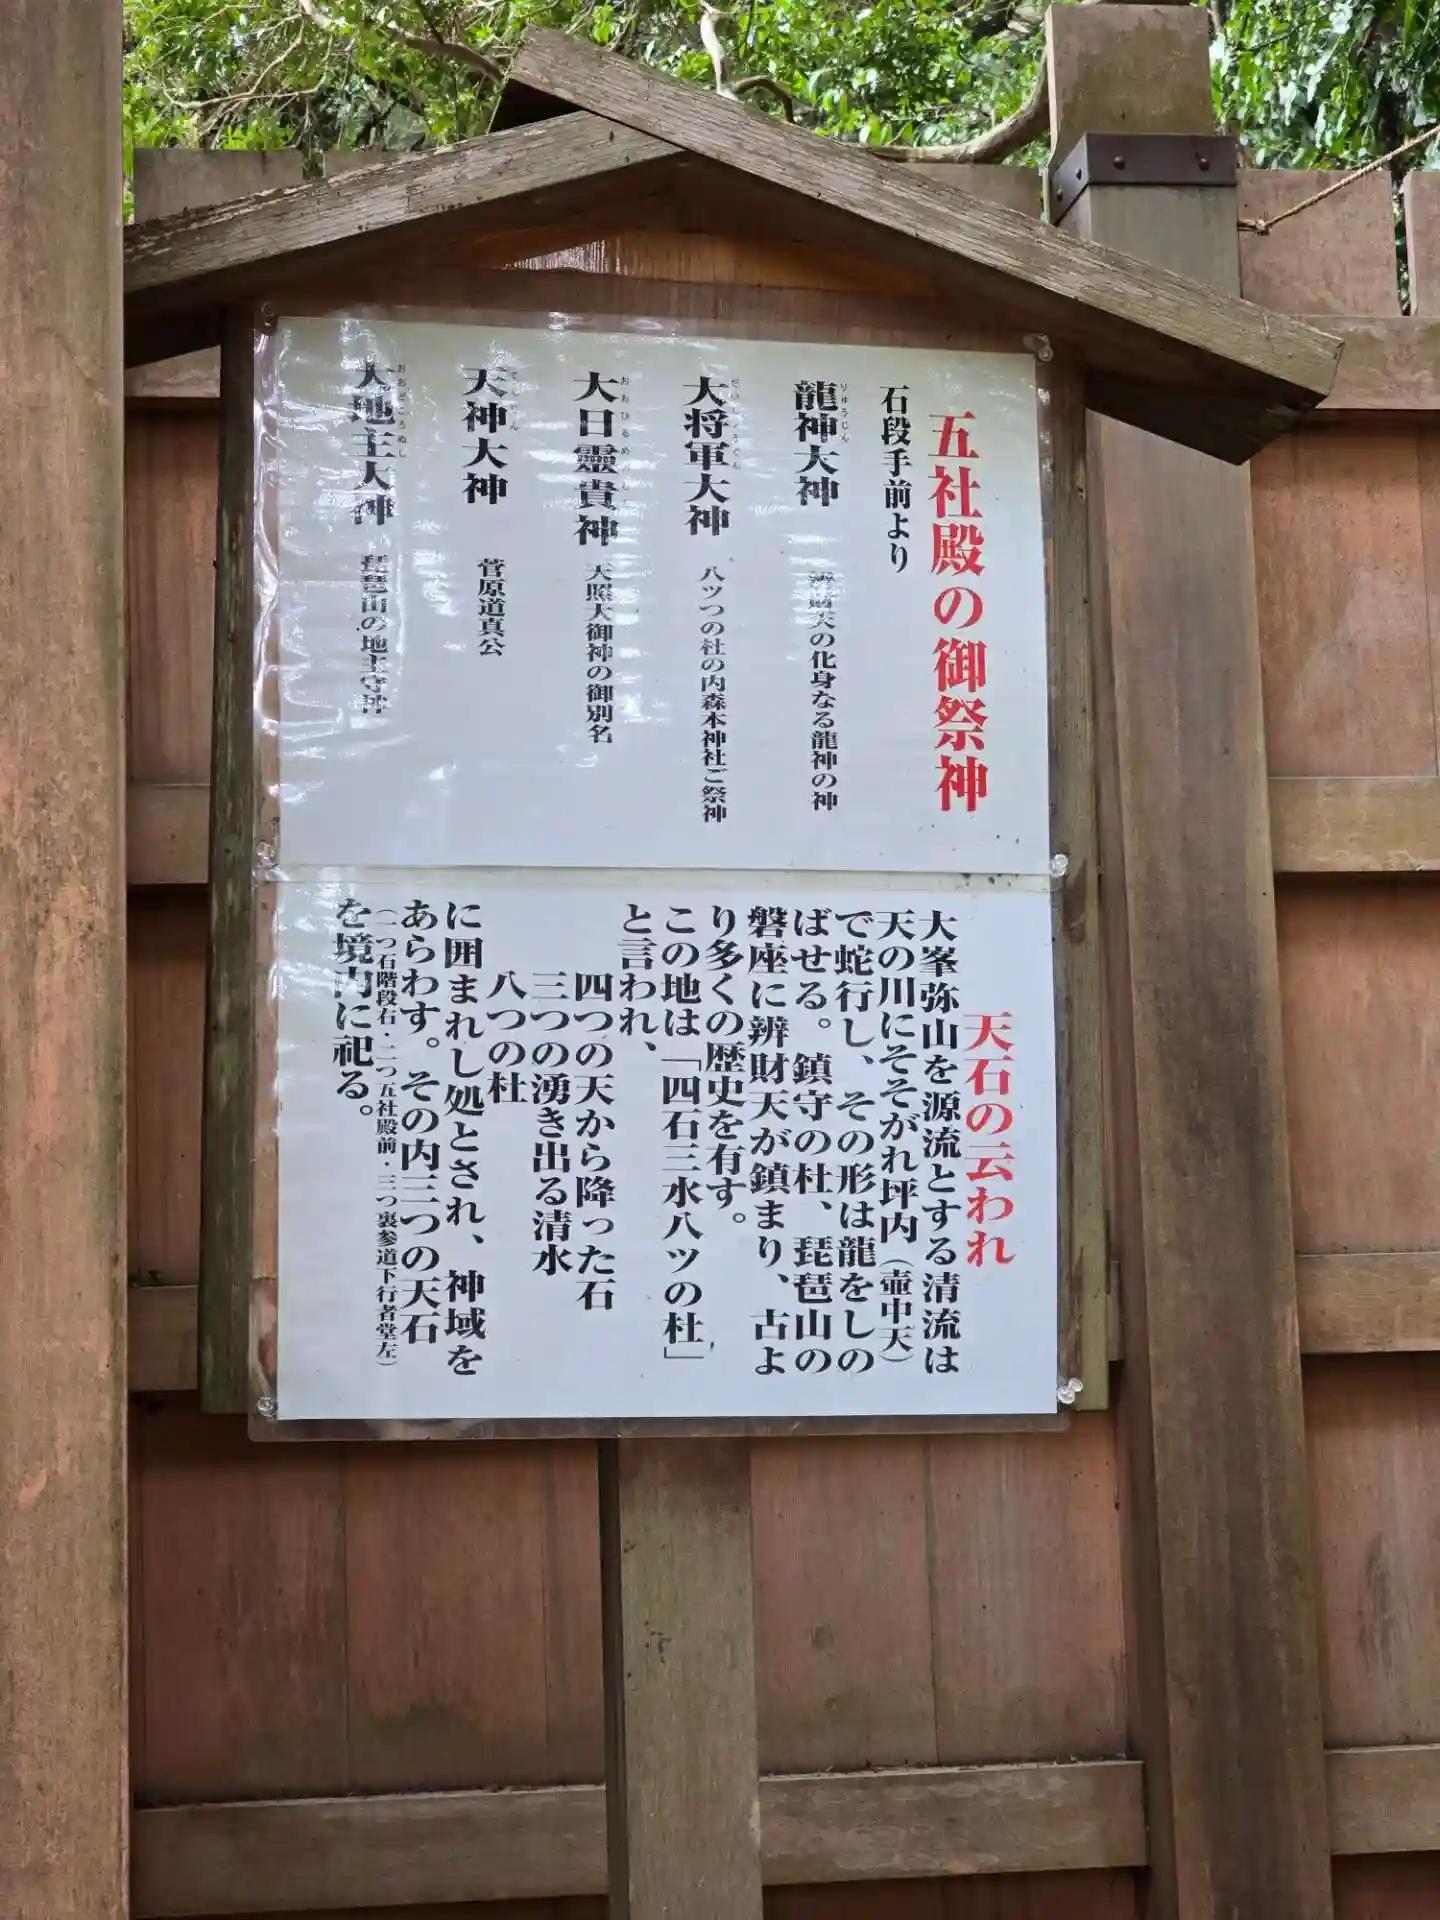 五社殿の御祭神
石段手前より
龍神大神 辨財天の化身なる龍神の神
りゅうじん
大将軍大神 八ッつの社の内森本神社ご祭神
だいしょうぐん
大日靈貴神 天照大御神の御別名
おおひるめむし
天神大神 菅原道真公
てんじん
大地主大神 琵琶山の地主守神
おおどころぬし
天石の云われ
大峯弥山を源流とする清流は
天の川にそそがれ坪内（壷中天）
で蛇行し、その形は龍をしの
ばせる。鎮守の杜、琵琶山の
磐座に辨財天が鎮まり、古よ
り多くの歴史を有す。
この地は「四石三水八ツの杜」
と言われ、
四つの天から降った石
三つの湧き出る清水
八つの杜
に囲まれし処とされ、神域を
あらわす。その内三つの天石
（一つ石階段右・二つ五社殿前・三つ裏参道下行者堂左）
を境内に祀る。